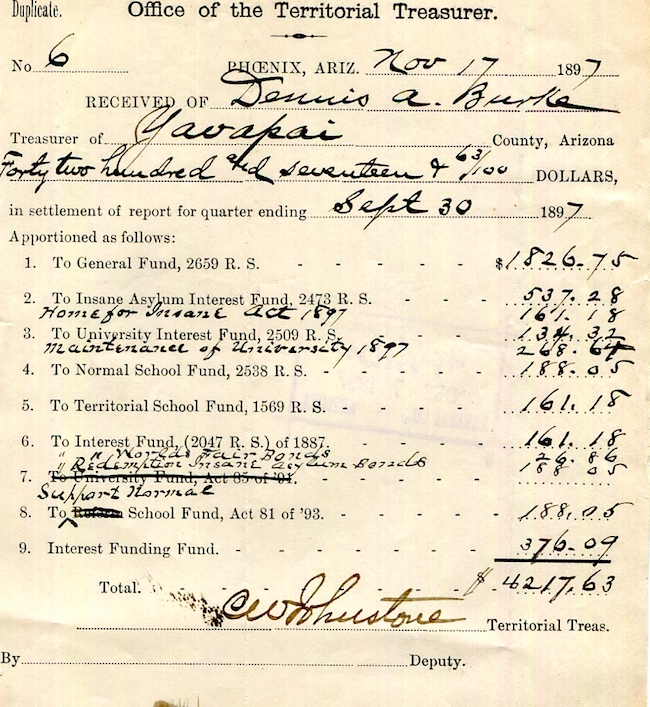 Duplicate. Office of the Territorial Treasurer.
No 6 PHŒNIX, ARIZ. Nov 17 1897
RECEIVED OF Dennis A. Burke
Treasurer of Yavapai County, Arizona
Forty two hundred and seventeen & 63/100 DOLLARS,
in settlement of report for quarter ending Sept 30 1897
Apportioned as follows:
1. To General Fund, 2659 R. S. - - - - - $1826.75
2. To Insane Asylum Interest Fund, 2473 R. S. - - - 537.28
Home for Insane Act 1897 161.18
3. To University Interest Fund, 2509 R. S. - - - 134.32
Maintenance of University 1897 268.64
4. To Normal School Fund, 2538 R. S. - - - - 188.05
5. To Territorial School Fund, 1569 R. S. - - - - 161.18
6. To Interest Fund, (2047 R. S.) of 1887. - - - - 161.18
" " Worlds Fair Bonds 26.86
" Redemption Insane Asylum Bonds 188.05
7. To University Fund, Act 85 of '91.
Support Normal
8. To Reform School Fund, Act 81 of '93. - - - - 188.05
9. Interest Funding Fund. - - - - - - 376.09
Total. - - - - - $4217.63
CW Johnstone Territorial Treas.
By Deputy.